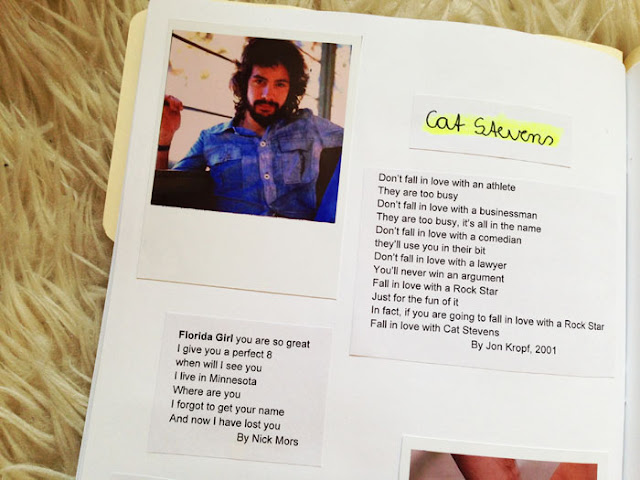 Cat Stevens
Don't fall in love with an athlete
They are too busy
Don't fall in love with a businessman
They are too busy, it's all in the name
Don't fall in love with a comedian
they'll use you in their bit
Don't fall in love with a lawyer
You'll never win an argument
Fall in love with a Rock Star
Just for the fun of it
In fact, if you are going to fall in love with a Rock Star
Fall in love with Cat Stevens
By Jon Kropf, 2001
Florida Girl you are so great
I give you a perfect 8
when will I see you
I live in Minnesota
Where are you
I forgot to get your name
And now I have lost you
By Nick Mors